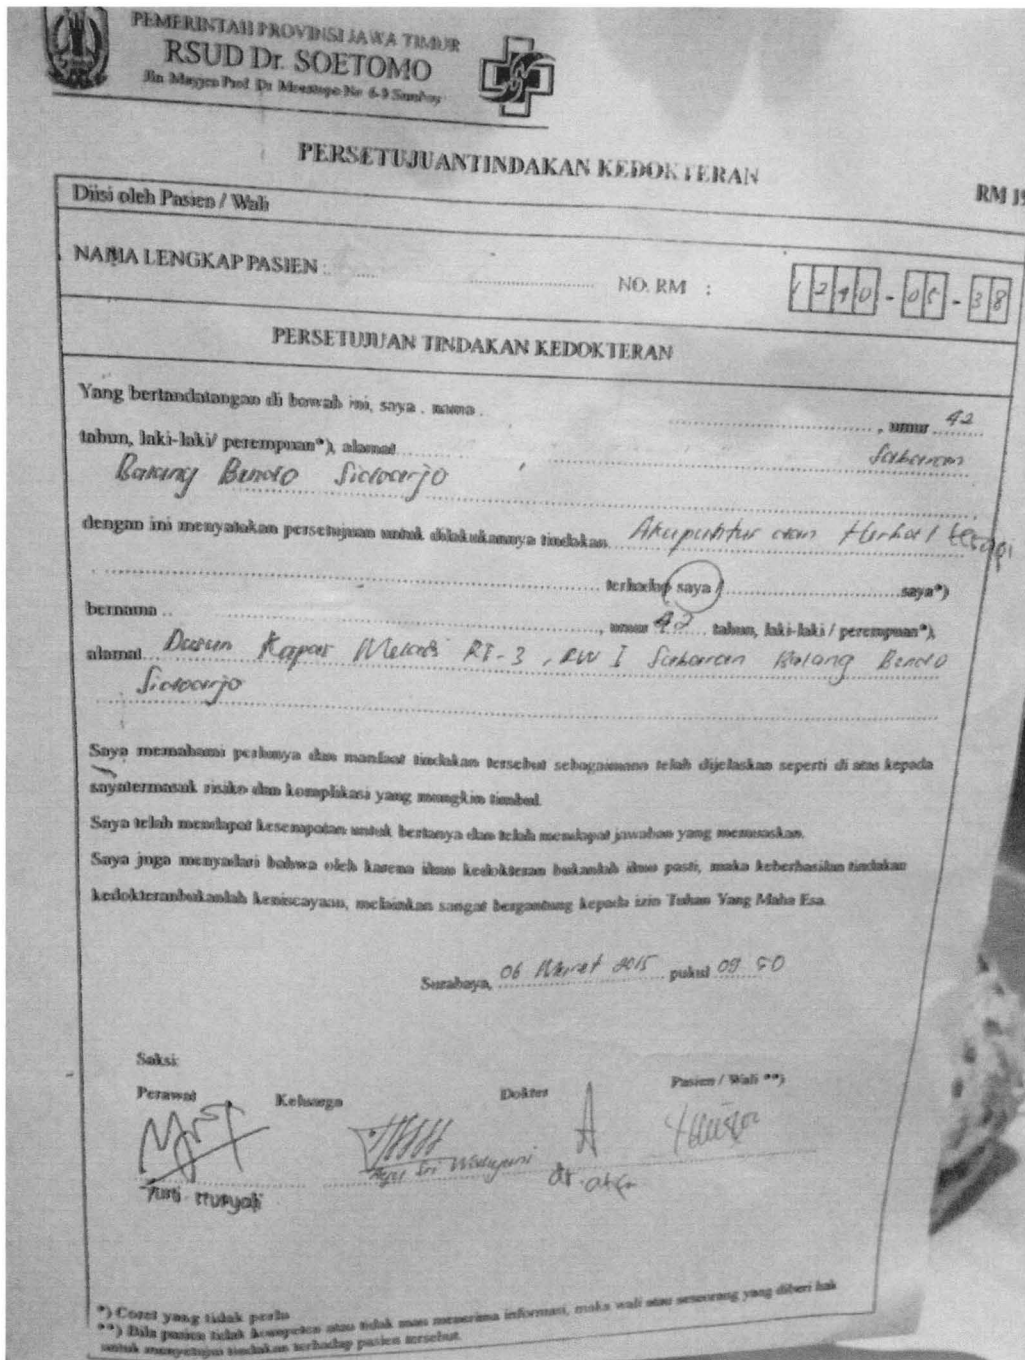 PEMERINTAH PROVINSI JAWA TIMUR
RSUD Dr. SOETOMO
Jln. Mayjen Prof. Dr. Moestopo No. 6-8 Surabay
PERSETUJUANTINDAKAN KEDOKTERAN
RM 19
Diisi oleh Pasien / Wali
NAMA LENGKAP PASIEN :
NO. RM :
1240-05-38
PERSETUJUAN TINDAKAN KEDOKTERAN
Yang bertandatangan di bawah ini, saya , nama , umur 42
tahun, laki-laki/ perempuan*), alamat
Sidoarjo
dengan ini menyatakan persetujuan untuk dilakukannya tindakan Akupuntur dan Herbal terapi
terhadap saya / saya*)
bernama , umur 42 tahun, laki-laki / perempuan*),
alamat Dusun RT-3, RW I Bendo
Sidoarjo
Saya memahami perlunya dan manfaat tindakan tersebut sebagaimana telah dijelaskan seperti di atas kepada
sayatermasuk risiko dan komplikasi yang mungkin timbul.
Saya telah mendapat kesempatan untuk bertanya dan telah mendapat jawaban yang memuaskan.
Saya juga menyadari bahwa oleh karena ilmu kedokteran bukanlah ilmu pasti, maka keberhasilan tindakan
kedokteranbukanlah keniscayaan, melainkan sangat bergantung kepada izin Tuhan Yang Maha Esa.
Surabaya, 06 Maret 2015 pukul 09
Saksi:
Perawat Keluarga Dokter Pasien / Wali **)
Ayu Sri
dr.
*) Coret yang tidak perlu
**) Bila pasien tidak kompeten atau tidak mau menerima informasi, maka wali atau seseorang yang diberi hak
untuk menyetujui tindakan terhadap pasien tersebut.